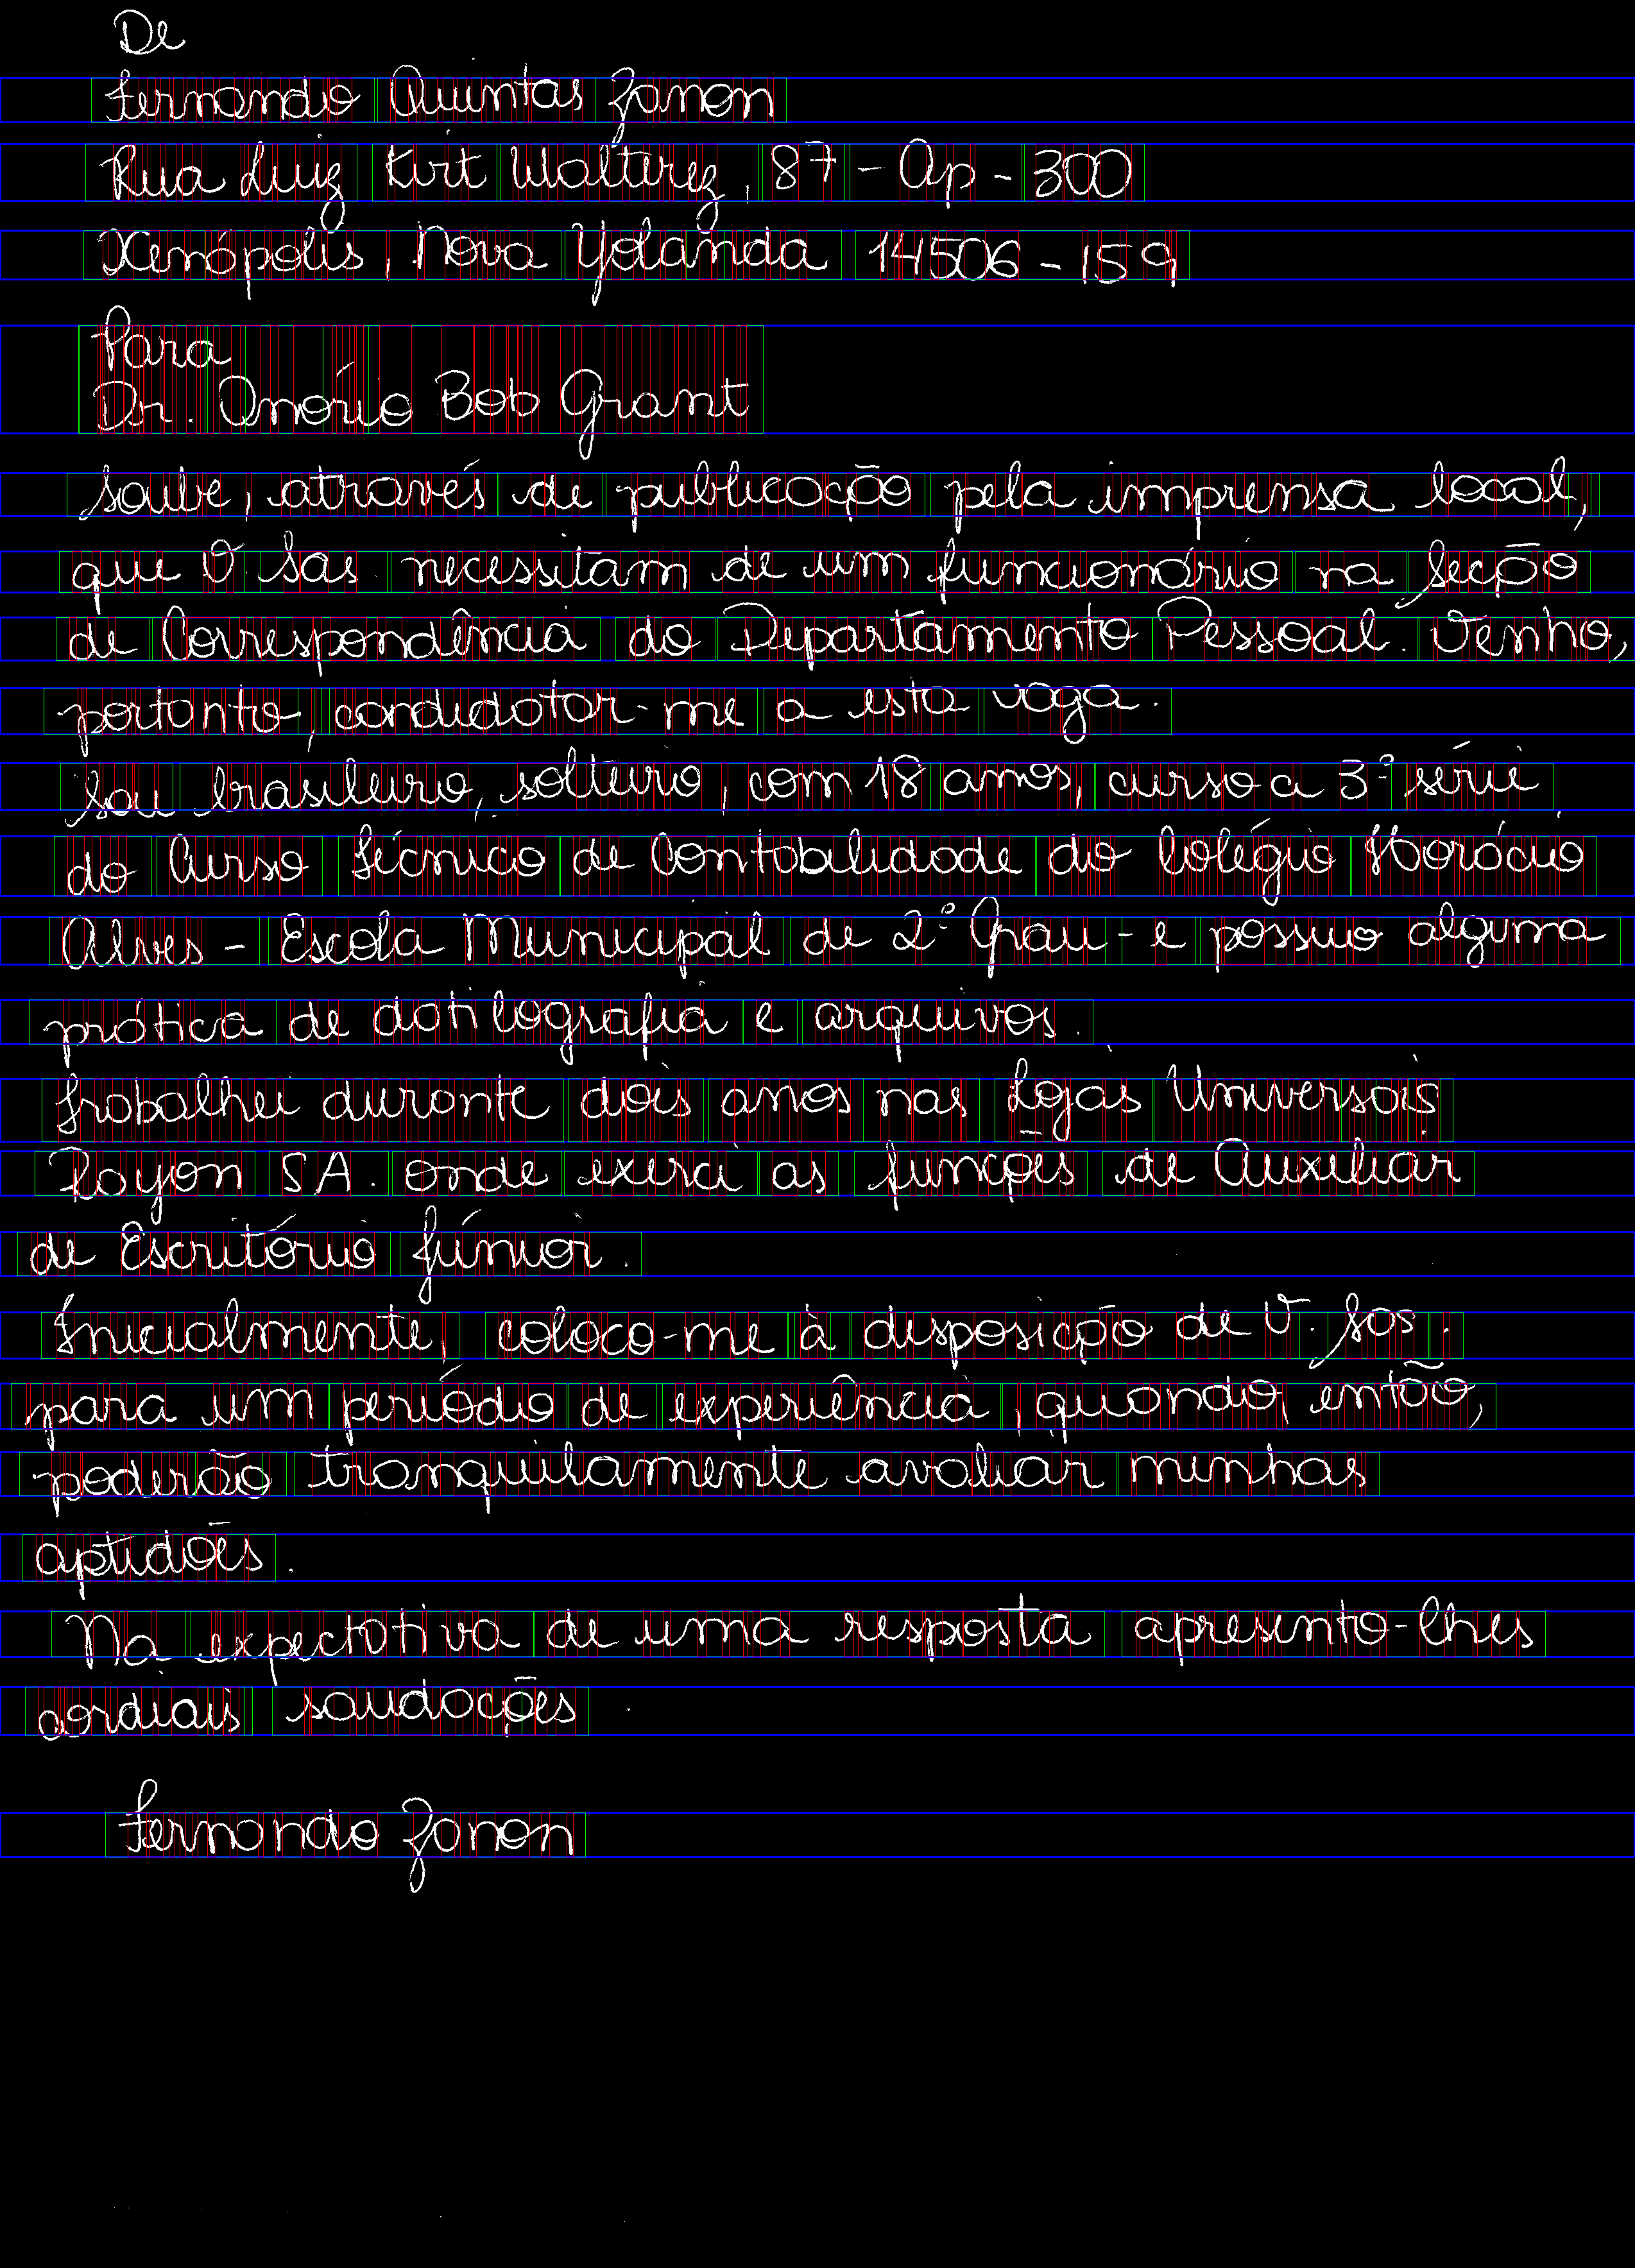 De
Fernando Quintas Zanon
Rua Luiz Kirt Walterez, 87 - Ap - 300
Xenópolis, Nova Yolanda 14506-159
Para
Dr. Onório Bob Grant
Soube, através de publicação pela imprensa local,
que V. Sas. necessitam de um funcionário na Seção
de Correspondência do Departamento Pessoal. Venho,
portanto, candidatar-me a esta vaga.
Sou brasileiro, solteiro, com 18 anos, curso a 3ª série
do Curso Técnico de Contabilidade do Colégio Horácio
Alves - Escola Municipal de 2º Grau - e possuo alguma
prática de datilografia e arquivos.
Trabalhei durante dois anos nas Lojas Universais
Rayon SA. onde exerci as funções de Auxiliar
de Escritório Júnior.
Inicialmente, coloco-me à disposição de V. Sas.
para um período de experiência, quando, então,
poderão tranquilamente avaliar minhas
aptidões.
Na expectativa de uma resposta apresento-lhes
cordiais saudações.
Fernando Zanon